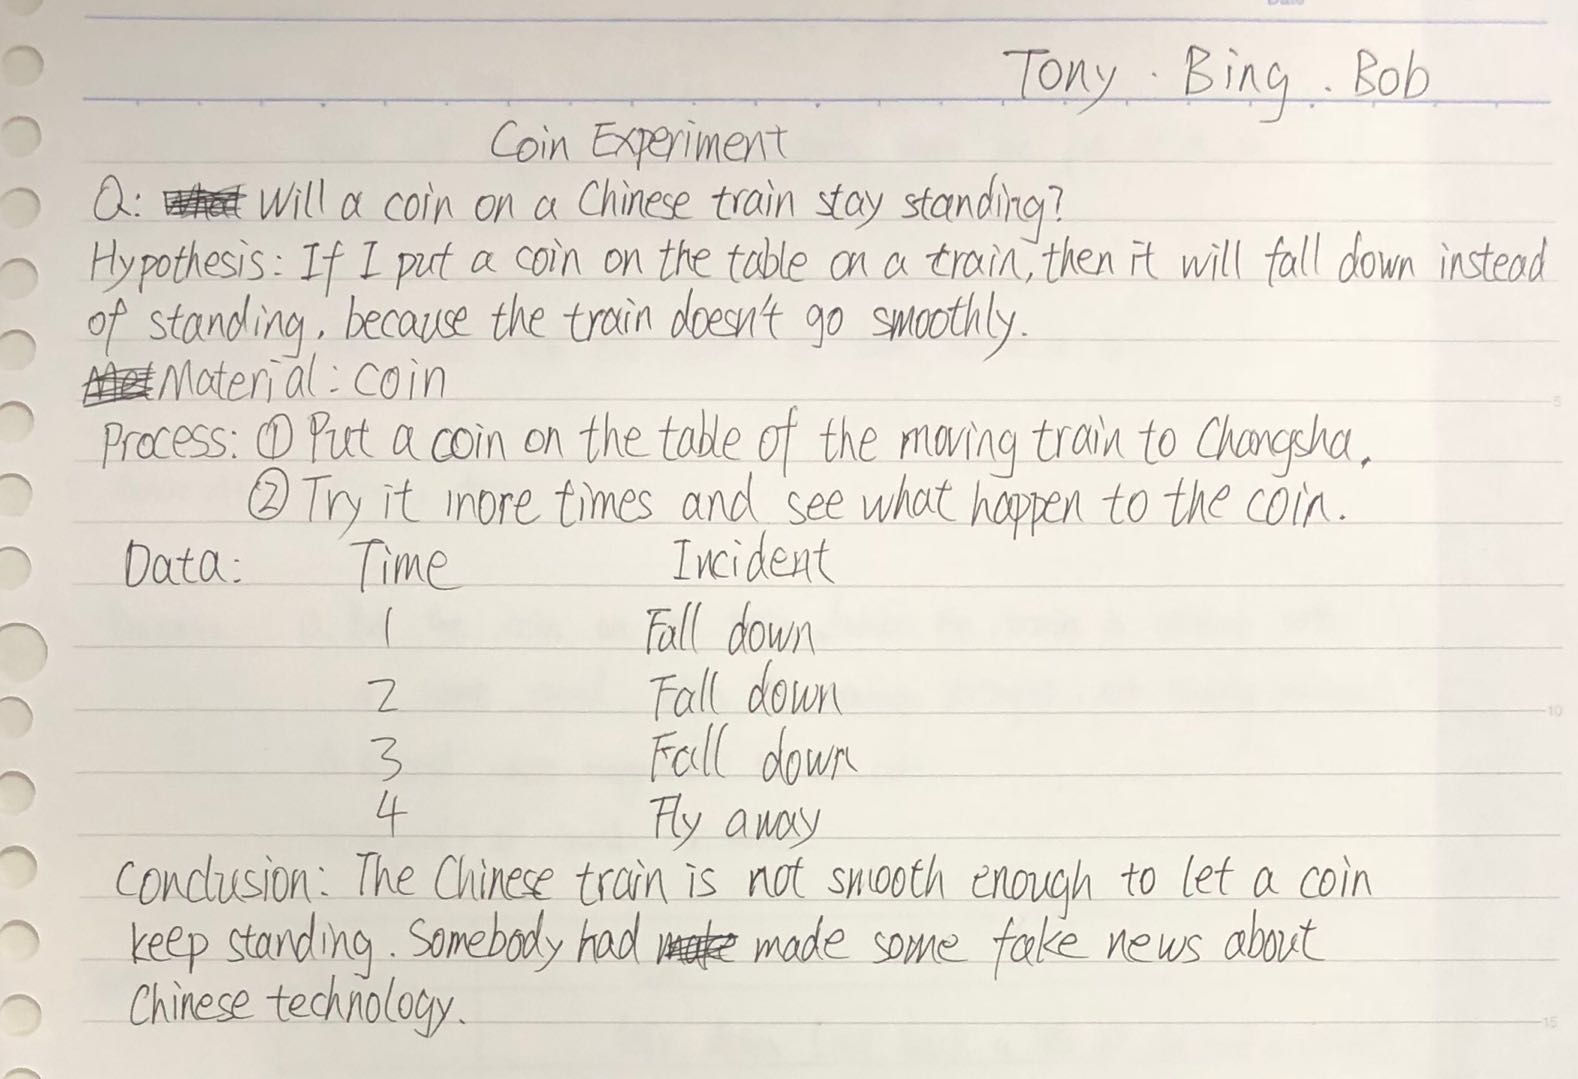 Tony · Bing . Bob
Coin Experiment
Q: Will a coin on a Chinese train stay standing?
Hypothesis: If I put a coin on the table on a train, then it will fall down instead
of standing, because the train doesn't go smoothly.
Material: coin
Process: ① Put a coin on the table of the moving train to Changsha.
② Try it more times and see what happen to the coin.
Data: Time Incident
1 Fall down
2 Fall down
3 Fall down
4 Fly away
Conclusion: The Chinese train is not smooth enough to let a coin
keep standing. Somebody had made some fake news about
Chinese technology.